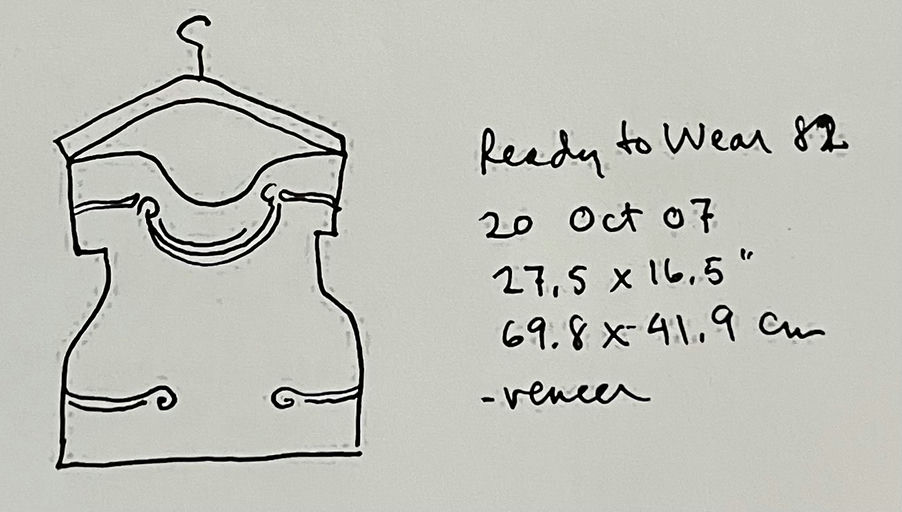 Ready to Wear 82
20 Oct 07
27.5 x 16.5"
69.8 x 41.9 cm
-veneer